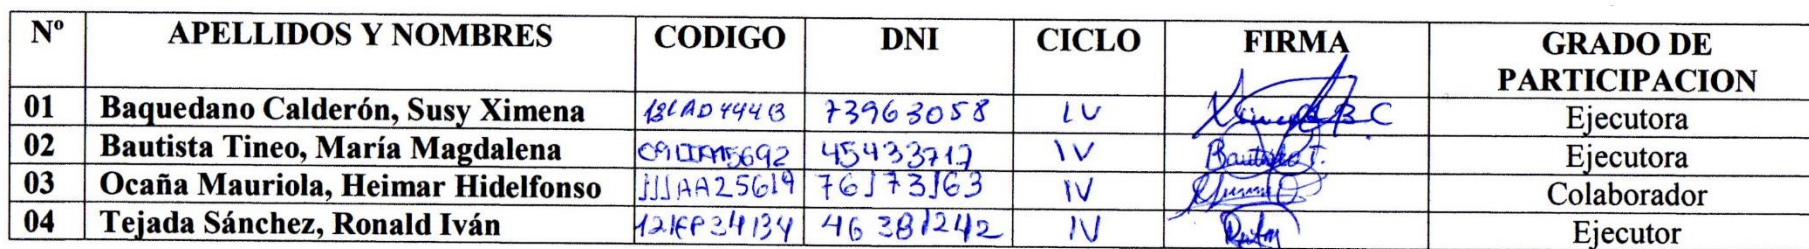 Nº APELLIDOS Y NOMBRES CODIGO DNI CICLO FIRMA GRADO DE PARTICIPACION
01 Baquedano Calderón, Susy Ximena 73963058 IV Ximena B.C Ejecutora
02 Bautista Tineo, María Magdalena 45433717 IV Bautista T. Ejecutora
03 Ocaña Mauriola, Heimar Hidelfonso JJJAA25619 76J73J63 IV Colaborador
04 Tejada Sánchez, Ronald Iván 46381242 IV Ejecutor